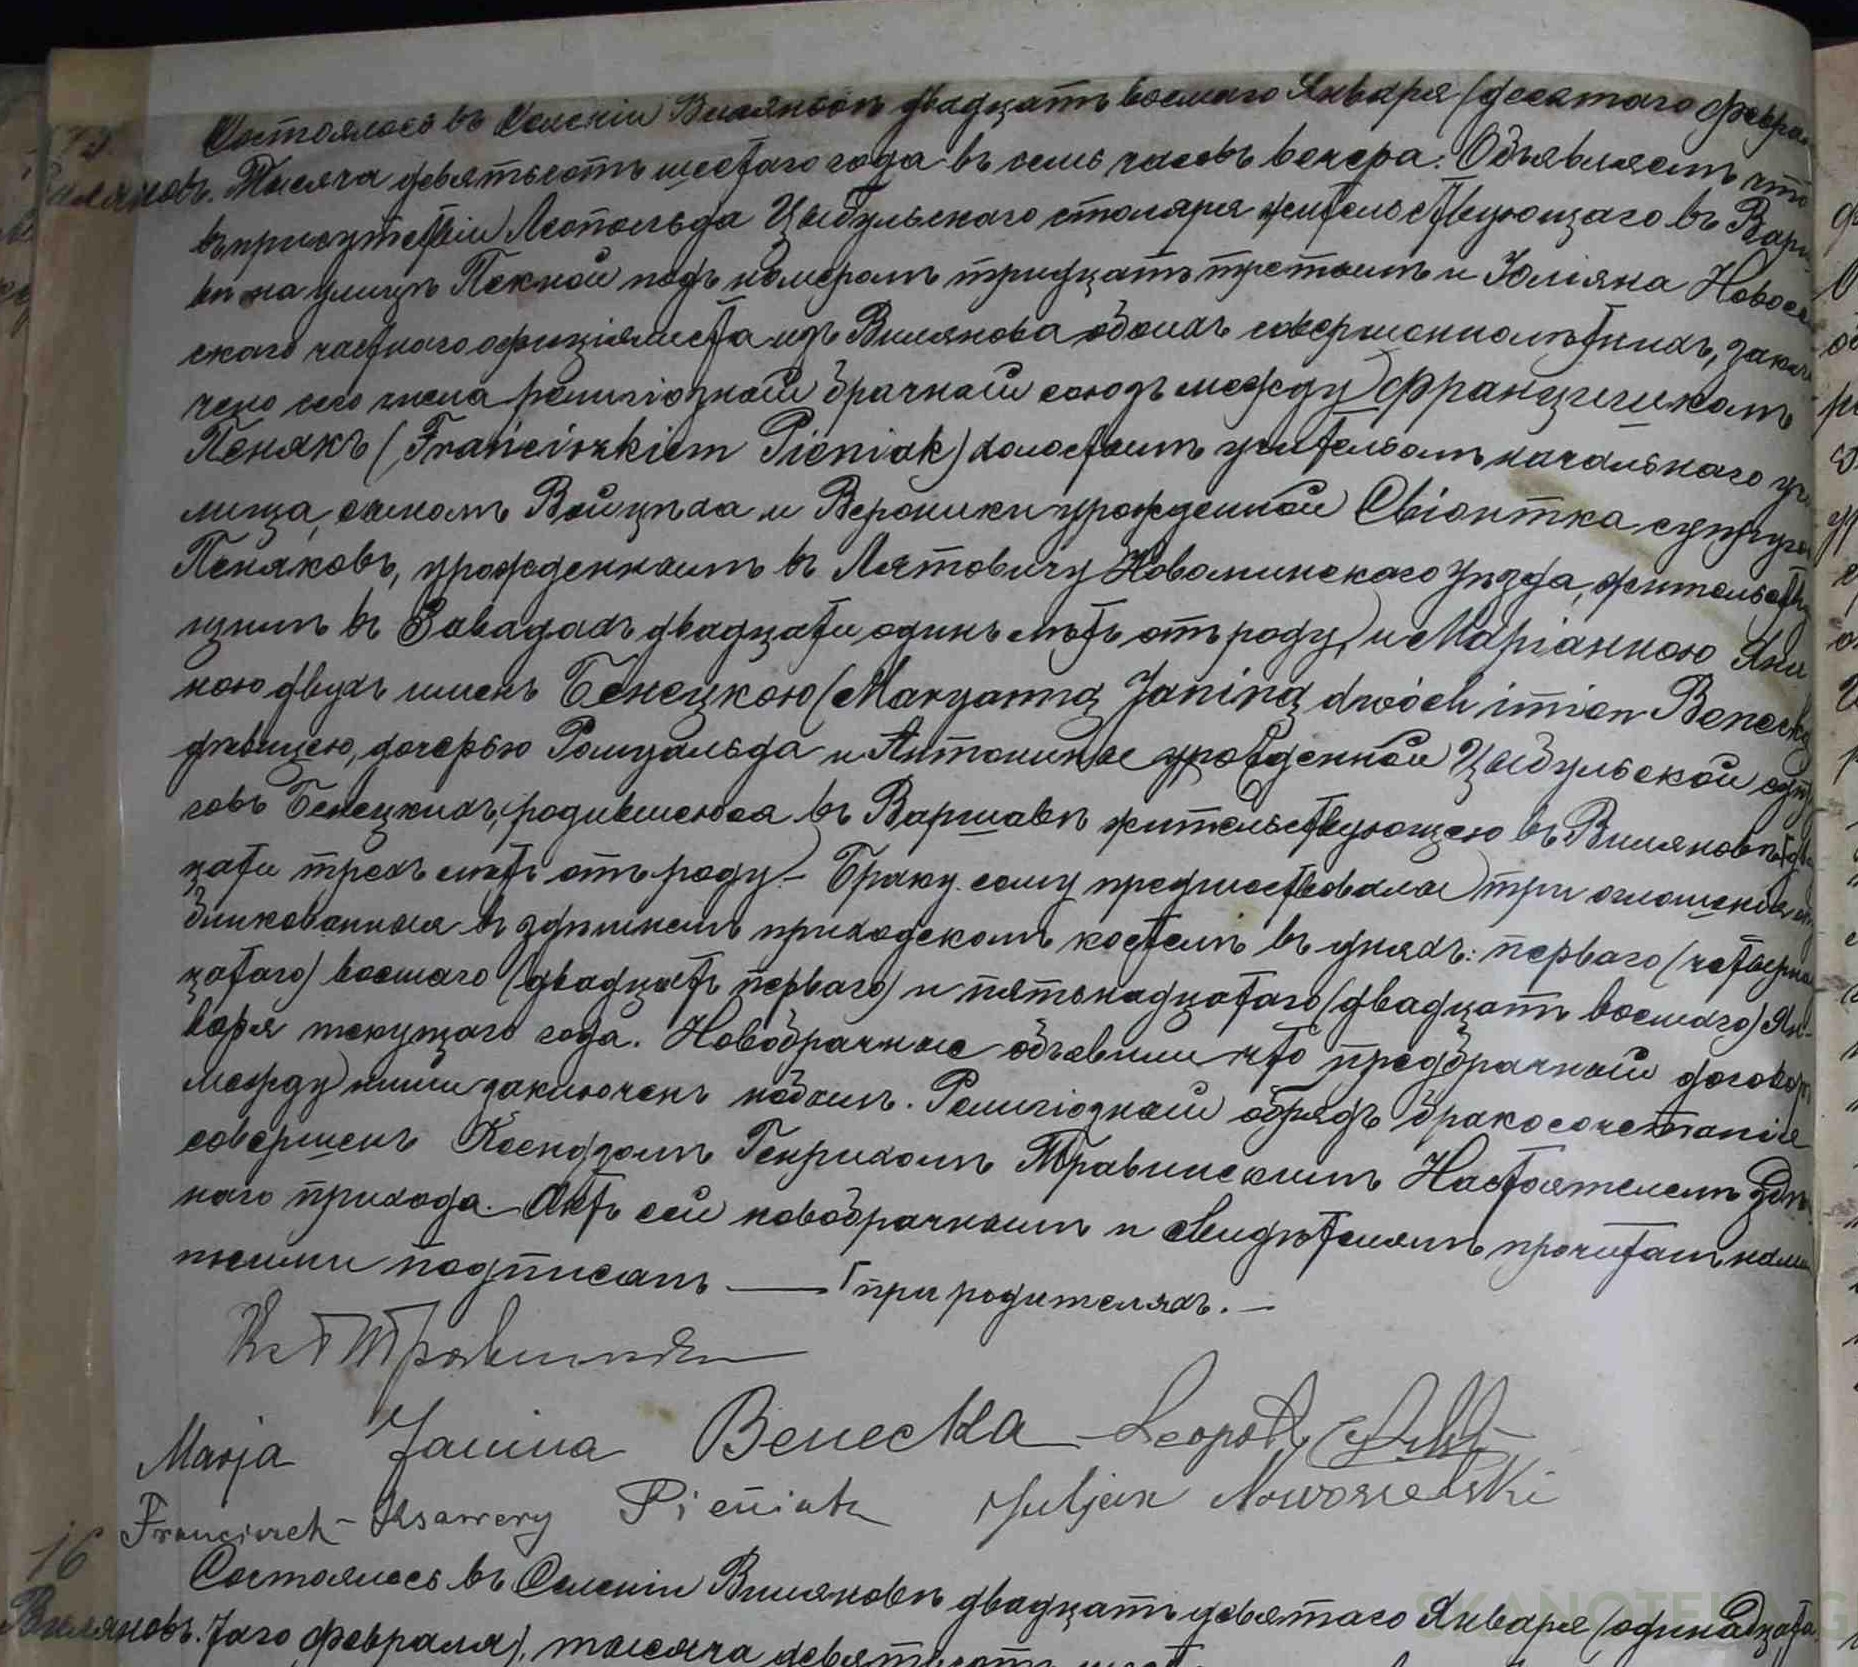 Состоялось въ Селеніи Виляновѣ двадцать восьмаго Января (десятаго Февра
Виляновъ. Тысяча девятьсотъ шестаго года въ семь часовъ вечера. Объявляемъ что
въ присутствіи Леопольда Цыбульскаго столяра жительствующаго въ Варша
вѣ на улицѣ Пекной подъ номеромъ тридцать третьимъ и Юліяна Новосель
скаго частнаго оффиціялиста изъ Вилянова обоихъ совершеннолѣтнихъ, заклю
чено сего числа религіозный брачный союзъ между Францишкомъ
Пенякъ (Franciszkiem Pieniak) холостымъ учителемъ начальнаго учи
лища, сыномъ Войцѣха и Вероники урожденной Свіонтка супруговъ
Пеняковъ, урожденнымъ въ Лятовичу Новоминскаго уѣзда, жительству
щимъ въ Завадахъ двадцати одинъ лѣтъ отъ роду, и Маріанною Яни
ною двухъ именъ Бенецкою (Maryanną Janiną dwóch imion Benecką
дѣвицею, дочерью Ромуальда и Антонины урожденной Цыбульской супру
говъ Бенецкихъ, родившеюся въ Варшавѣ жительствующею въ Виляновѣ два
цати трехъ лѣтъ отъ роду. - Браку сему предшествовали три оглашенія опу
бликованныя въ здѣшнемъ приходскомъ костелѣ въ дняхъ: перваго (четырна
цатаго) восьмаго (двадцать перваго) и пятьнадцатаго (двадцать восьмаго) Ян-
варя текущаго года. Новобрачные объявили что предбрачный договоръ
между ними заключенъ небылъ. Религіозный обрядъ бракосочетанія
совершенъ Ксендзомъ Генрихомъ Травинскимъ Настоятелемъ здѣш
няго прихода. - Актъ сей новобрачнымъ и свидѣтелямъ прочитанъ нами
и ими подписанъ —— Г при родителяхъ. —
Marja Janina Benecka Leopold
Franciszek-Ksawery Pieniak Juljan Nowosielski
16 Состоялось въ Селеніи Виляновѣ двадцать девятаго Января (одинадцата
Виляновъ. таго Февраля), тысяча девятьсотъ